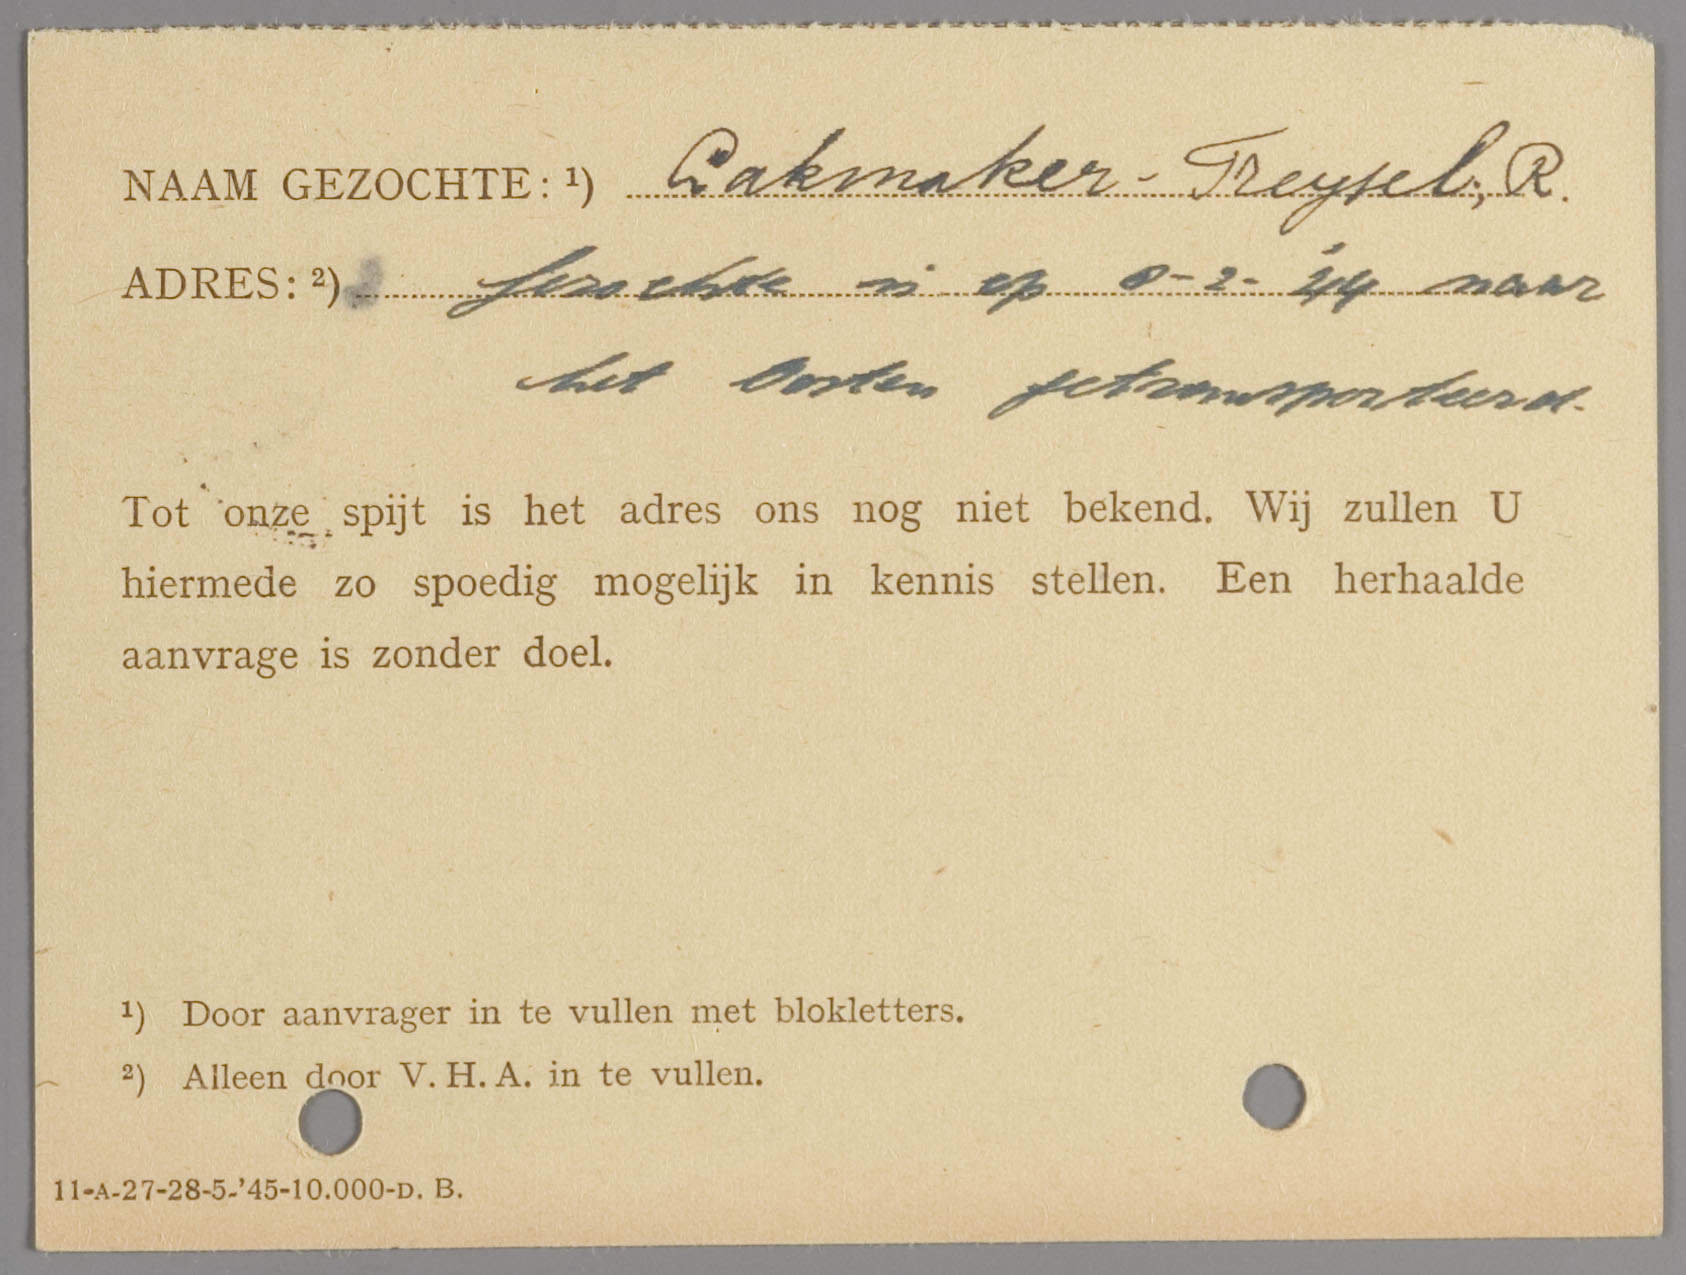 NAAM GEZOCHTE: ¹) Lakmaker - Treysel, R.
ADRES: ²) Gezochte is op 8-2-'44 naar
het Oosten getransporteerd.
Tot onze spijt is het adres ons nog niet bekend. Wij zullen U
hiermede zo spoedig mogelijk in kennis stellen. Een herhaalde
aanvrage is zonder doel.
¹) Door aanvrager in te vullen met blokletters.
²) Alleen door V. H. A. in te vullen.
11-A-27-28-5-'45-10.000-D. B.